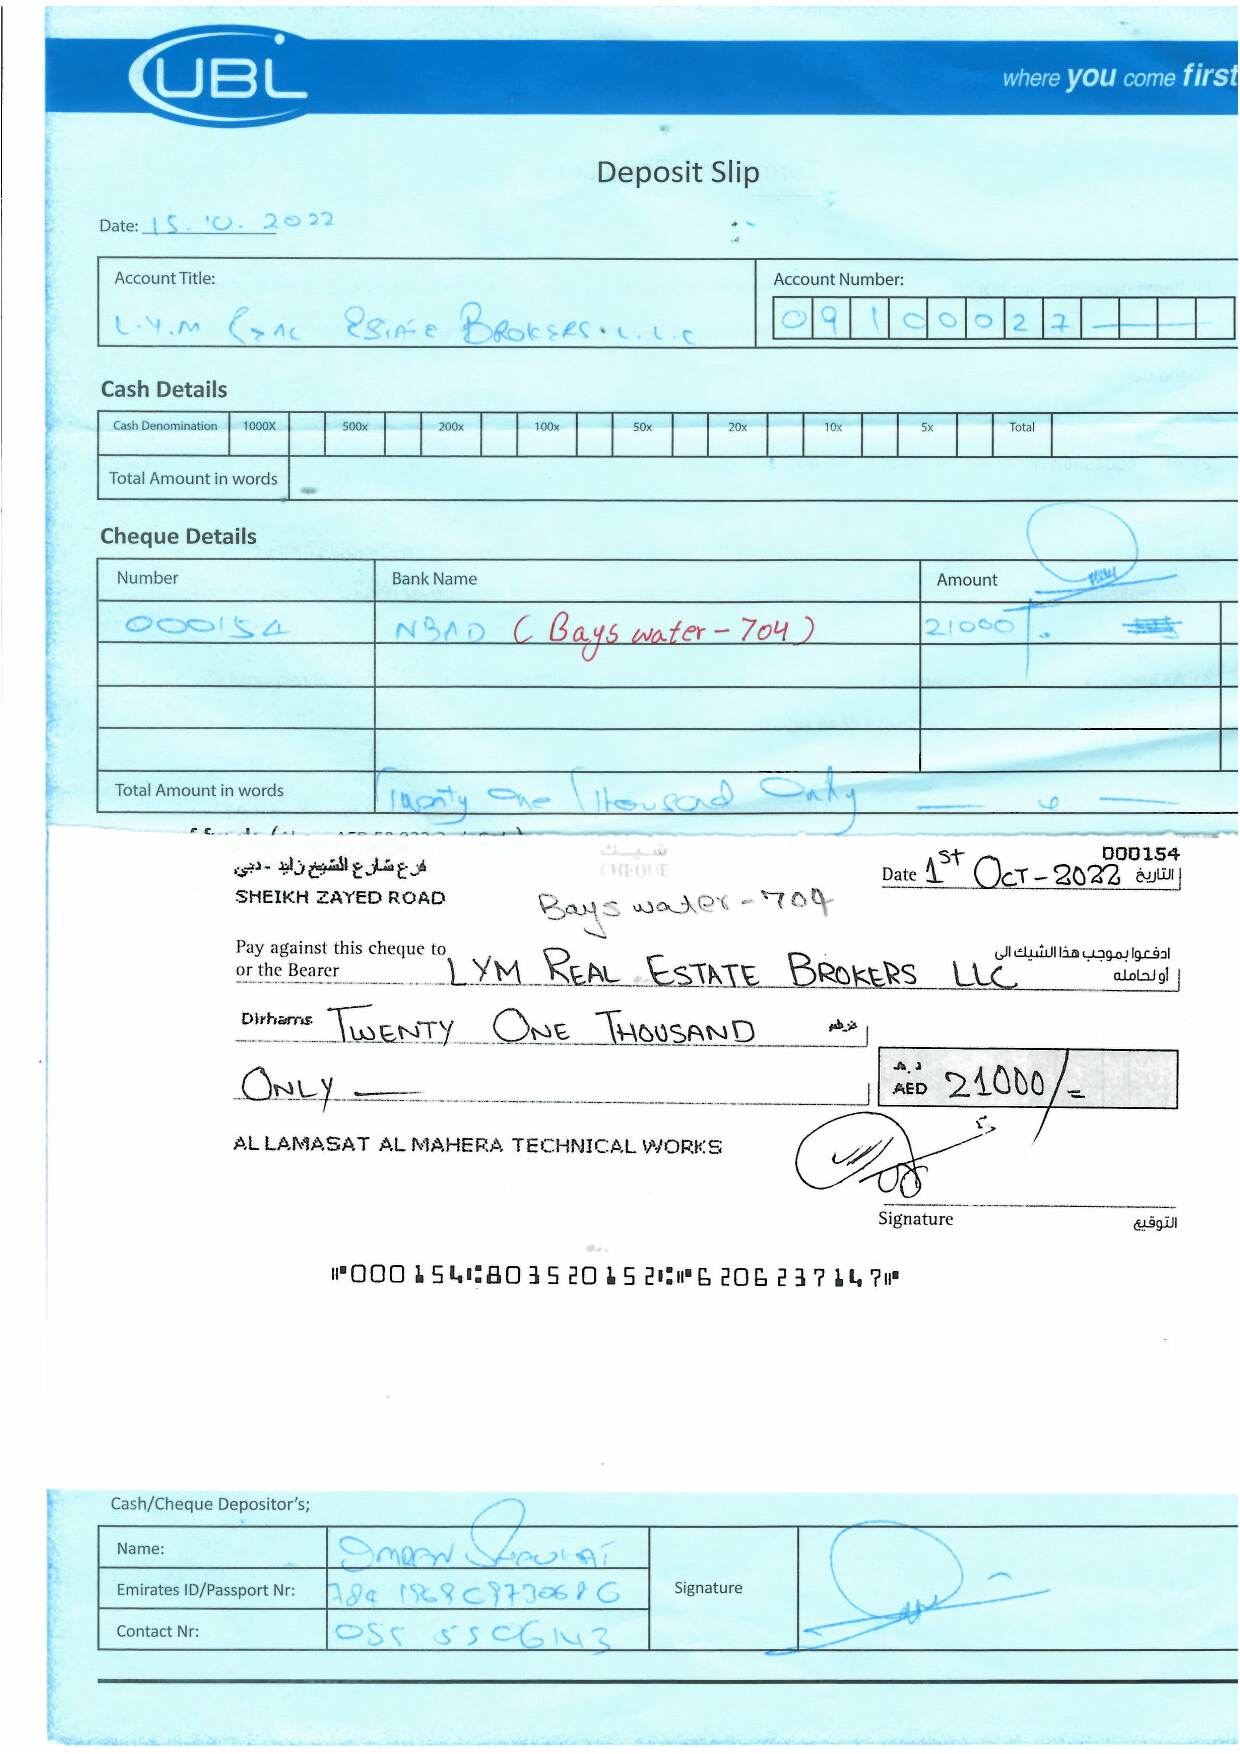 UBL
where you come first
Deposit Slip
Date: 15.10.2022
Account Title:
Account Number:
L.Y.M Real Estate Brokers. L.L.C
09100027
Cash Details
Cash Denomination 1000X 500x 200x 100x 50x 20x 10x 5x Total
Total Amount in words
Cheque Details
Number Bank Name Amount
000154 NBAD (Bays water - 704) 21000/.
Total Amount in words Twenty One Thousand Only
فرع شارع الشيخ زايد - دبي
شيك
CHEQUE
000154
SHEIKH ZAYED ROAD
Date 1st OCT - 2022 التاريخ
Bays water - 704
Pay against this cheque to
or the Bearer
LYM REAL ESTATE BROKERS LLC
ادفعوا بموجب هذا الشيك الى
أو لحامله
Dirhams TWENTY ONE THOUSAND درهم
ONLY
د.هـ
AED 21000/=
AL LAMASAT AL MAHERA TECHNICAL WORKS
Signature التوقيع
⑈000154⑆803520152⑆⑈6206237147⑈
Cash/Cheque Depositor's;
Name: Imran Shaukat
Emirates ID/Passport Nr:
Signature
Contact Nr: 055 5506143